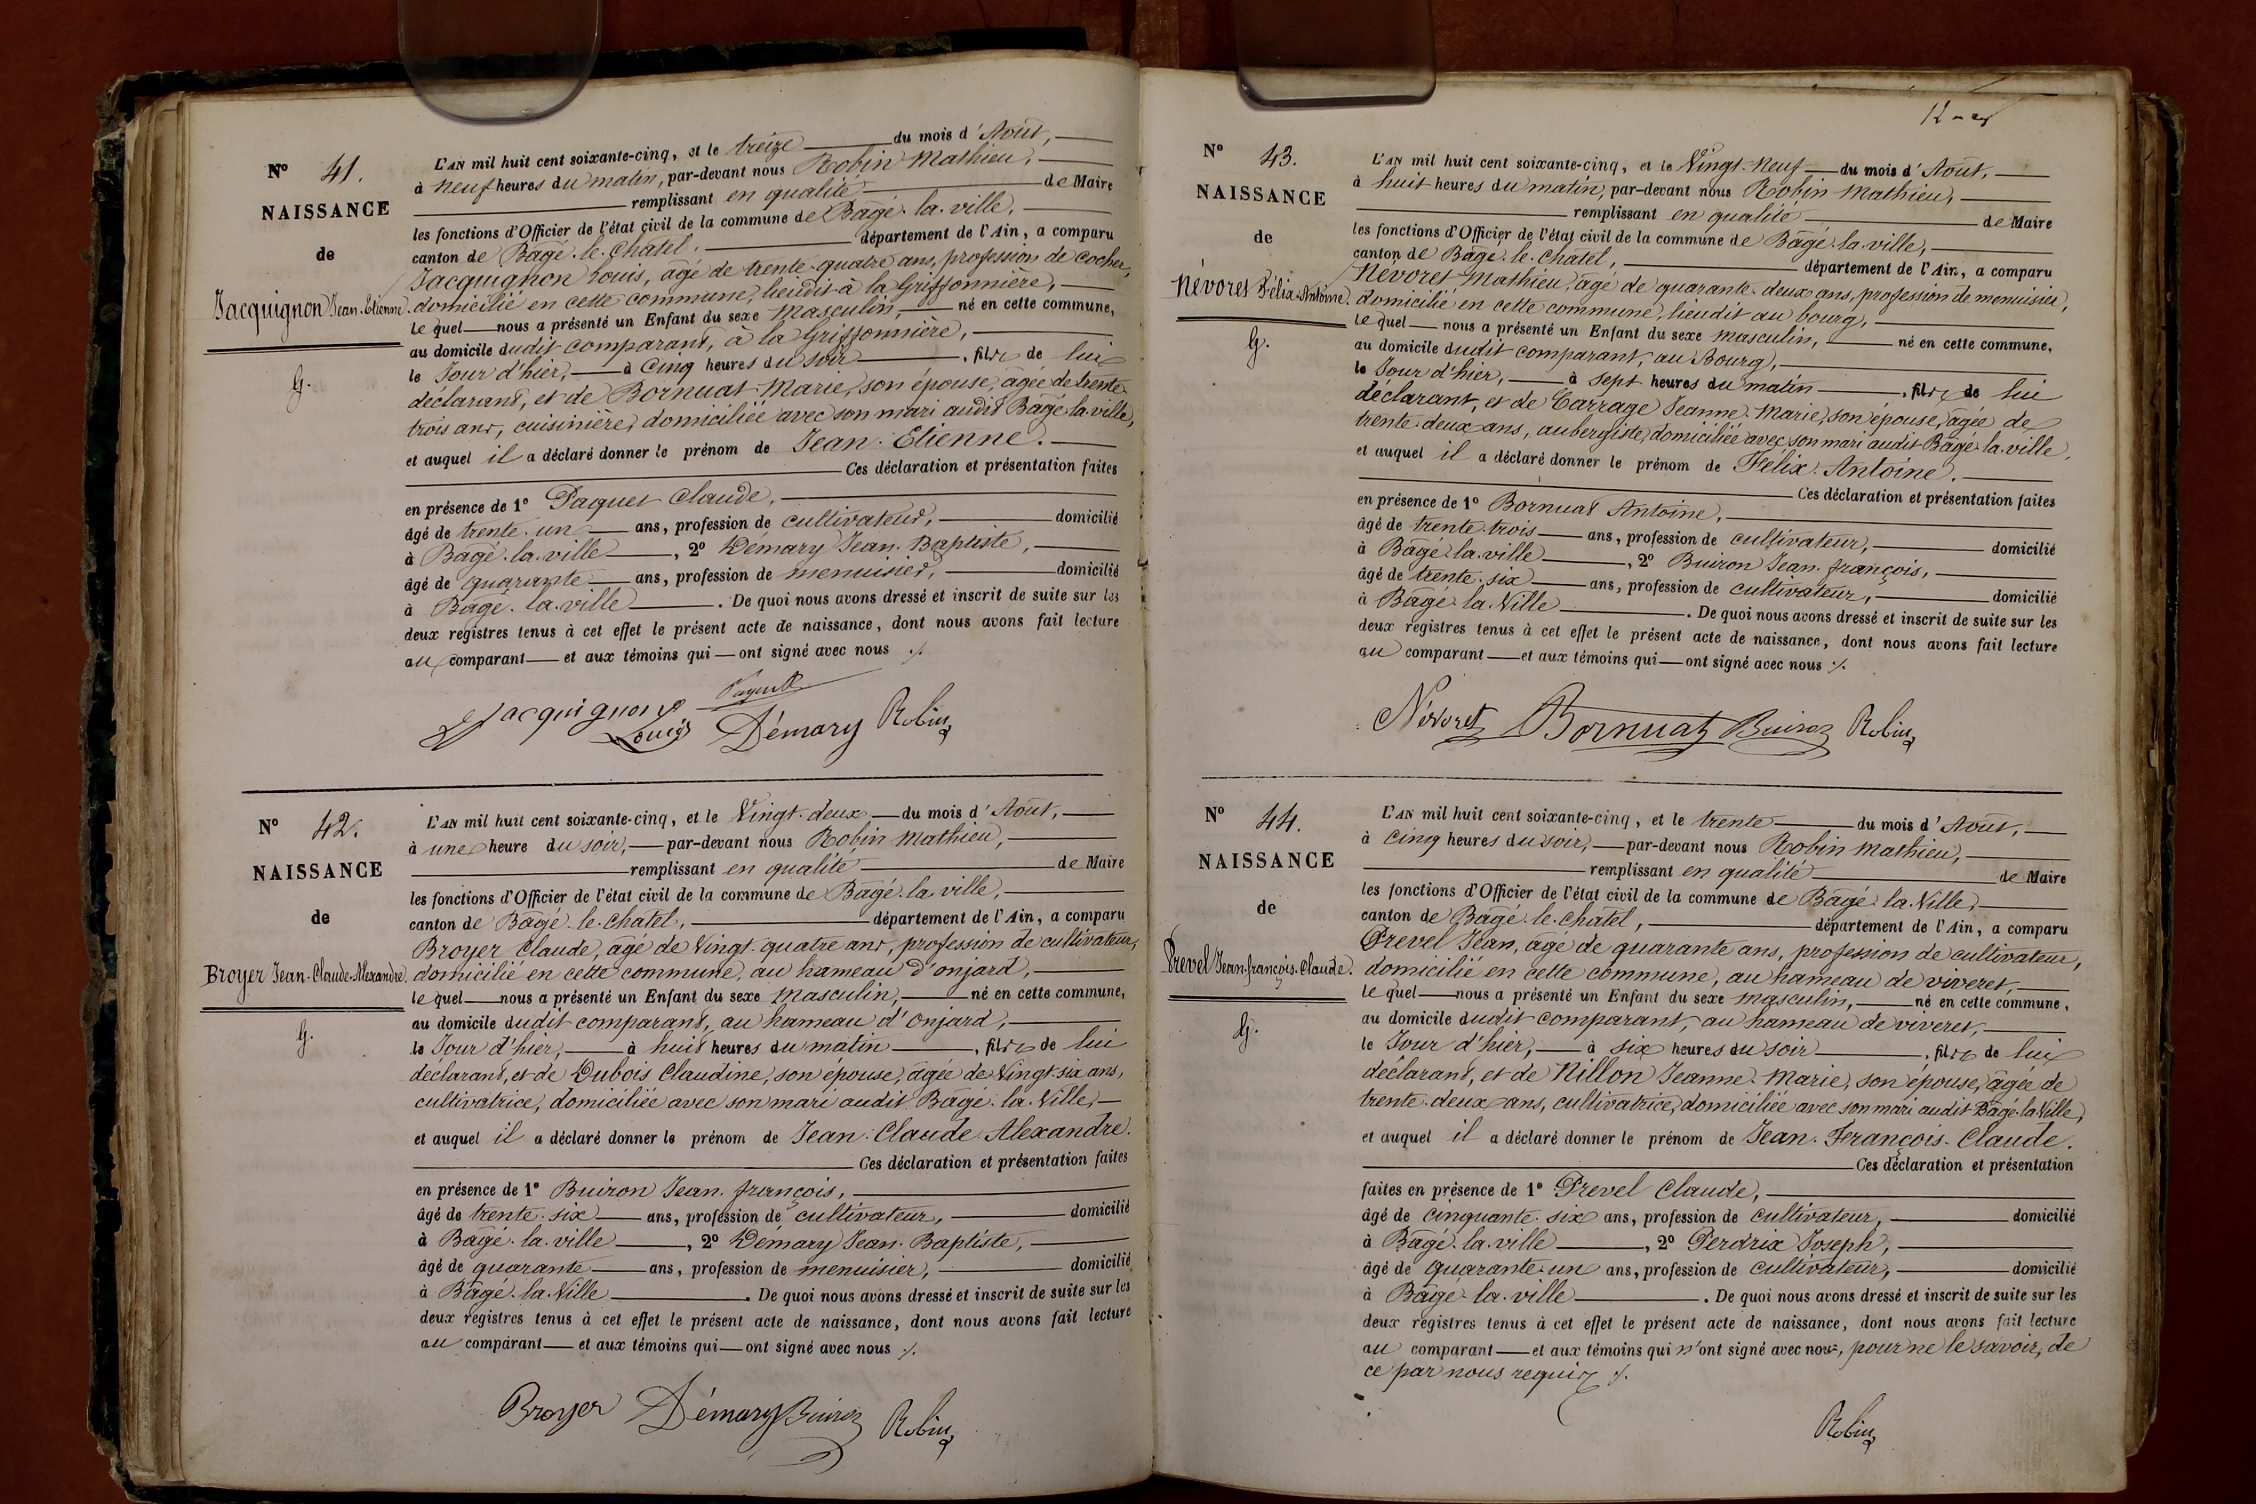 N° 41.
NAISSANCE
de
Jacquignon Jean-Etienne.
G.
L'AN mil huit cent soixante-cinq, et le treize du mois d'Août,
à neuf heures du matin, par-devant nous Robin Mathieu,
remplissant en qualité de Maire
les fonctions d'Officier de l'état civil de la commune de Bâgé-la-ville,
canton de Bâgé-le-Chatel, département de l'Ain, a comparu
Jacquignon Louis, âgé de trente-quatre ans, profession de cocher,
domicilié en cette commune, lieudit à la Griffonnière,
le quel nous a présenté un Enfant du sexe masculin, né en cette commune,
au domicile dudit comparant, à la Griffonnière,
le Jour d'hier, à Cinq heures du soir, fils de lui
déclarant, et de Bornuat Marie, son épouse, âgée de trente-
trois ans, cuisinière, domiciliée avec son mari audit Bâgé-la-ville,
et auquel il a déclaré donner le prénom de Jean-Etienne.
Ces déclaration et présentation faites
en présence de 1° Paquet Claude,
âgé de trente-un ans, profession de cultivateur, domicilié
à Bâgé-la-ville, 2° Démary Jean-Baptiste,
âgé de quarante ans, profession de menuisier, domicilié
à Bâgé-la-ville. De quoi nous avons dressé et inscrit de suite sur les
deux registres tenus à cet effet le présent acte de naissance, dont nous avons fait lecture
au comparant et aux témoins qui ont signé avec nous ./.
Paquet
Jacquignon
Louis Démary Robin
N° 42.
NAISSANCE
de
Broyer Jean-Claude-Alexandre.
G.
L'AN mil huit cent soixante-cinq, et le Vingt-deux du mois d'Août,
à une heure du soir, par-devant nous Robin Mathieu,
remplissant en qualité de Maire
les fonctions d'Officier de l'état civil de la commune de Bâgé-la-ville,
canton de Bâgé-le-Chatel, département de l'Ain, a comparu
Broyer Claude, âgé de Vingt-quatre ans, profession de cultivateur,
domicilié en cette commune, au hameau d'onjard,
le quel nous a présenté un Enfant du sexe masculin, né en cette commune,
au domicile dudit comparant, au hameau d'onjard,
le Jour d'hier, à huit heures du matin, fils de lui
déclarant, et de Dubois Claudine, son épouse, âgée de Vingt-six ans,
cultivatrice, domiciliée avec son mari audit Bâgé-la-Ville,
et auquel il a déclaré donner le prénom de Jean-Claude-Alexandre.
Ces déclaration et présentation faites
en présence de 1° Buiron Jean-françois,
âgé de trente-six ans, profession de cultivateur, domicilié
à Bâgé-la-ville, 2° Démary Jean-Baptiste,
âgé de quarante ans, profession de menuisier, domicilié
à Bâgé-la-Ville. De quoi nous avons dressé et inscrit de suite sur les
deux registres tenus à cet effet le présent acte de naissance, dont nous avons fait lecture
au comparant et aux témoins qui ont signé avec nous ./.
Broyer Démary Buiron Robin
N° 43.
NAISSANCE
de
Névoret Félix-Antoine.
G.
L'AN mil huit cent soixante-cinq, et le Vingt-Neuf du mois d'Août,
à huit heures du matin, par-devant nous Robin Mathieu,
remplissant en qualité de Maire
les fonctions d'Officier de l'état civil de la commune de Bâgé-la-ville,
canton de Bâgé-le-Chatel, département de l'Ain, a comparu
Névoret Mathieu, âgé de quarante-deux ans, profession de menuisier,
domicilié en cette commune, lieudit au bourg,
le quel nous a présenté un Enfant du sexe masculin, né en cette commune,
au domicile dudit comparant, au Bourg,
le Jour d'hier, à sept heures du matin, fils de lui
déclarant, et de Carrage Jeanne-Marie, son épouse, âgée de
trente-deux ans, aubergiste, domiciliée avec son mari audit Bâgé-la-ville,
et auquel il a déclaré donner le prénom de Félix-Antoine.
Ces déclaration et présentation faites
en présence de 1° Bornuat Antoine,
âgé de trente-trois ans, profession de cultivateur, domicilié
à Bâgé-la-ville, 2° Buiron Jean-françois,
âgé de trente-six ans, profession de cultivateur, domicilié
à Bâgé-la-Ville. De quoi nous avons dressé et inscrit de suite sur les
deux registres tenus à cet effet le présent acte de naissance, dont nous avons fait lecture
au comparant et aux témoins qui ont signé avec nous ./.
Névoret Bornuat Buiron Robin
N° 44.
NAISSANCE
de
Prevel Jean-françois-Claude.
G.
L'AN mil huit cent soixante-cinq, et le trente du mois d'Août,
à cinq heures du soir, par-devant nous Robin Mathieu,
remplissant en qualité de Maire
les fonctions d'Officier de l'état civil de la commune de Bâgé-la-Ville,
canton de Bâgé-le-Chatel, département de l'Ain, a comparu
Prevel Jean, âgé de quarante ans, profession de cultivateur,
domicilié en cette commune, au hameau de viveret,
le quel nous a présenté un Enfant du sexe masculin, né en cette commune,
au domicile dudit comparant, au hameau de viveret,
le Jour d'hier, à six heures du soir, fils de lui
déclarant, et de Nillon Jeanne-Marie, son épouse, âgée de
trente-deux ans, cultivatrice, domiciliée avec son mari audit Bâgé-la-Ville,
et auquel il a déclaré donner le prénom de Jean-François-Claude.
Ces déclaration et présentation
faites en présence de 1° Prevel Claude,
âgé de cinquante-six ans, profession de cultivateur, domicilié
à Bâgé-la-ville, 2° Perdrix Joseph,
âgé de quarante-un ans, profession de cultivateur, domicilié
à Bâgé-la-ville. De quoi nous avons dressé et inscrit de suite sur les
deux registres tenus à cet effet le présent acte de naissance, dont nous avons fait lecture
au comparant et aux témoins qui n'ont signé avec nous, pour ne le savoir, de
ce par nous requis ./.
Robin